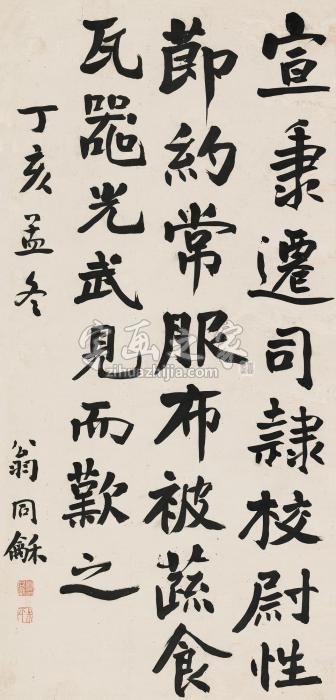 宣秉遷司隷校尉性
節約常服布被蔬食
瓦器光武見而歎之
丁亥孟冬
翁同龢
字画之家
zihuazhijia.com